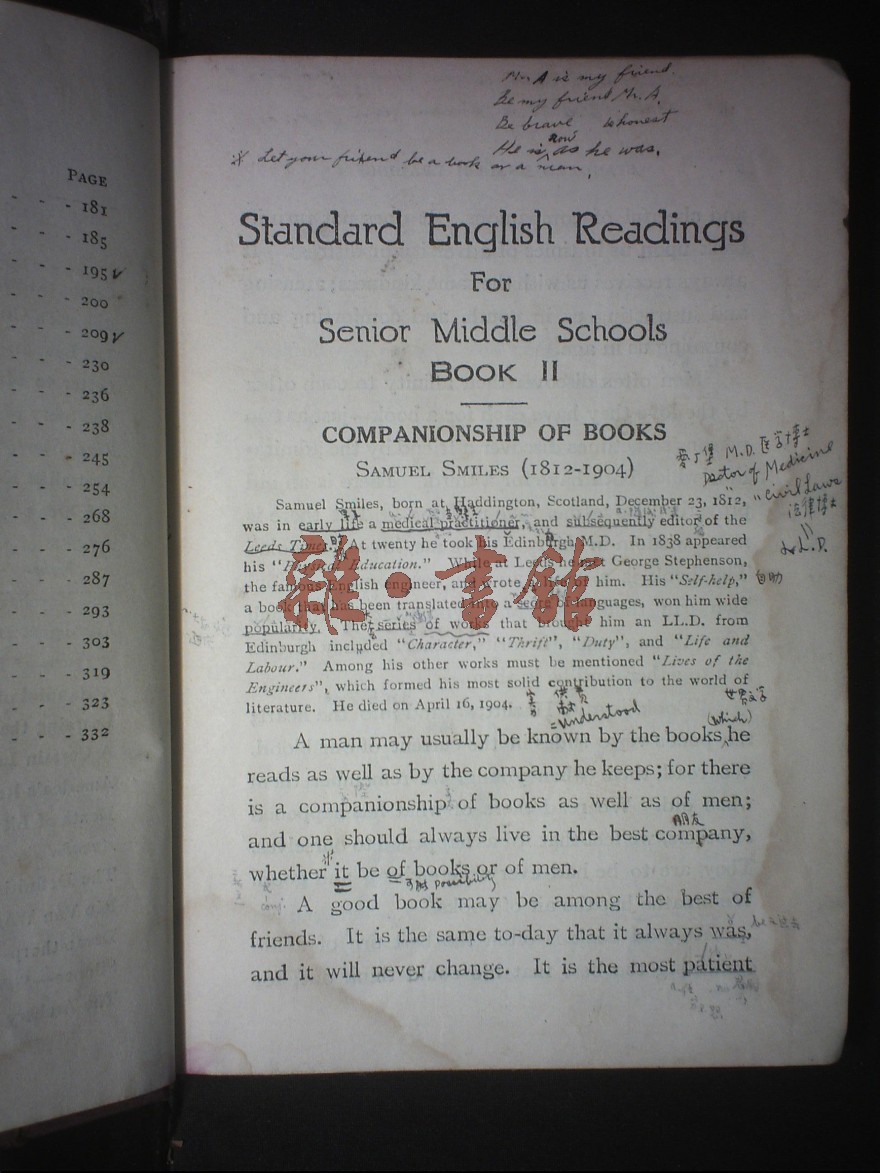 PAGE
- - - 181
- - - 185
- - - 195 ✓
- - - 200
- - - 209 ✓
- - - 230
- - - 236
- - - 238
- - - 245
- - - 254
- - - 268
- - - 276
- - - 287
- - - 293
- - - 303
- - - 319
- - - 323
- - - 332
Mr. A is my friend.
Be my friend Mr. A.
Be brave be honest
He is now as he was.
Let your friend be a book or a man,
Standard English Readings
For
Senior Middle Schools
BOOK II
COMPANIONSHIP OF BOOKS
SAMUEL SMILES (1812-1904)
M.D. 医学博士
Doctor of Medicine
" " Civil Laws
法律博士
LL.D.
Samuel Smiles, born at Haddington, Scotland, December 23, 1812,
was in early life a medical practitioner, and subsequently editor of the
Leeds Times. At twenty he took his Edinburgh M.D. In 1838 appeared
his "Physical Education." While at Leeds he met George Stephenson,
the famous English engineer, and wrote a life of him. His "Self-help,"
自助
a book that has been translated into a score of languages, won him wide
popularity. The series of works that brought him an LL.D. from
Edinburgh included "Character," "Thrift", "Duty", and "Life and
Labour." Among his other works must be mentioned "Lives of the
Engineers", which formed his most solid contribution to the world of
literature. He died on April 16, 1904.
=understood
(which)
A man may usually be known by the books he
reads as well as by the company he keeps; for there
is a companionship of books as well as of men;
and one should always live in the best company,
朋友
whether it be of books or of men.
possibility
conj.
A good book may be among the best of
friends. It is the same to-day that it always was,
and it will never change. It is the most patient
雜·書館